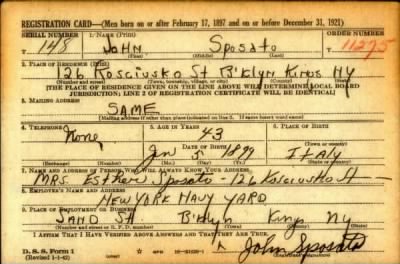 REGISTRATION CARD—(Men born on or after February 17, 1897 and on or before December 31, 1921)
SERIAL NUMBER 1. NAME (Print) ORDER NUMBER
T 148 JOHN Sposato 11275
(First) (Middle) (Last)
2. PLACE OF RESIDENCE (Print)
126 Kosciusko St B'klyn Kings NY
(Number and street) (Town, township, village, or city) (County) (State)
[THE PLACE OF RESIDENCE GIVEN ON THE LINE ABOVE WILL DETERMINE LOCAL BOARD
JURISDICTION; LINE 2 OF REGISTRATION CERTIFICATE WILL BE IDENTICAL]
3. MAILING ADDRESS
SAME
[Mailing address if other than place indicated on line 2. If same insert word same]
4. TELEPHONE 5. AGE IN YEARS 6. PLACE OF BIRTH
None 43
DATE OF BIRTH (Town or county)
Jan 5 1899 Italy
(Exchange) (Number) (Mo.) (Day) (Yr.) (State or country)
7. NAME AND ADDRESS OF PERSON WHO WILL ALWAYS KNOW YOUR ADDRESS
MRS. Esther Sposato - 126 Kosciusko St -
8. EMPLOYER'S NAME AND ADDRESS
NEW YORK NAVY YARD
9. PLACE OF EMPLOYMENT OR BUSINESS
SAND St. B'klyn Kings NY
(Number and street or R. F. D. number) (Town) (County) (State)
I AFFIRM THAT I HAVE VERIFIED ABOVE ANSWERS AND THAT THEY ARE TRUE.
D. S. S. Form 1
(Revised 1-1-42) (over)
John Sposato